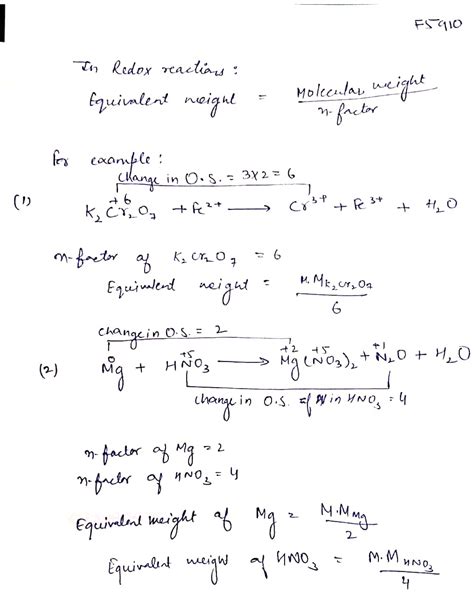 F5910
In Redox reactions:
Equivalent weight = Molecular weight / n-factor
for example:
change in O.S. = 3x2 = 6
(1) K₂Cr₂O₇ + Fe²⁺ ⟶ Cr³⁺ + Fe³⁺ + H₂O
+6
n-factor of K₂Cr₂O₇ = 6
Equivalent weight = M.M K₂Cr₂O₇ / 6
change in O.S. = 2
0 +5 +2 +5 +1
(2) Mg + HNO₃ ⟶ Mg(NO₃)₂ + N₂O + H₂O
change in O.S. of N in HNO₃ = 4
n-factor of Mg = 2
n-factor of HNO₃ = 4
Equivalent weight of Mg = M.M Mg / 2
Equivalent weight of HNO₃ = M.M HNO₃ / 4